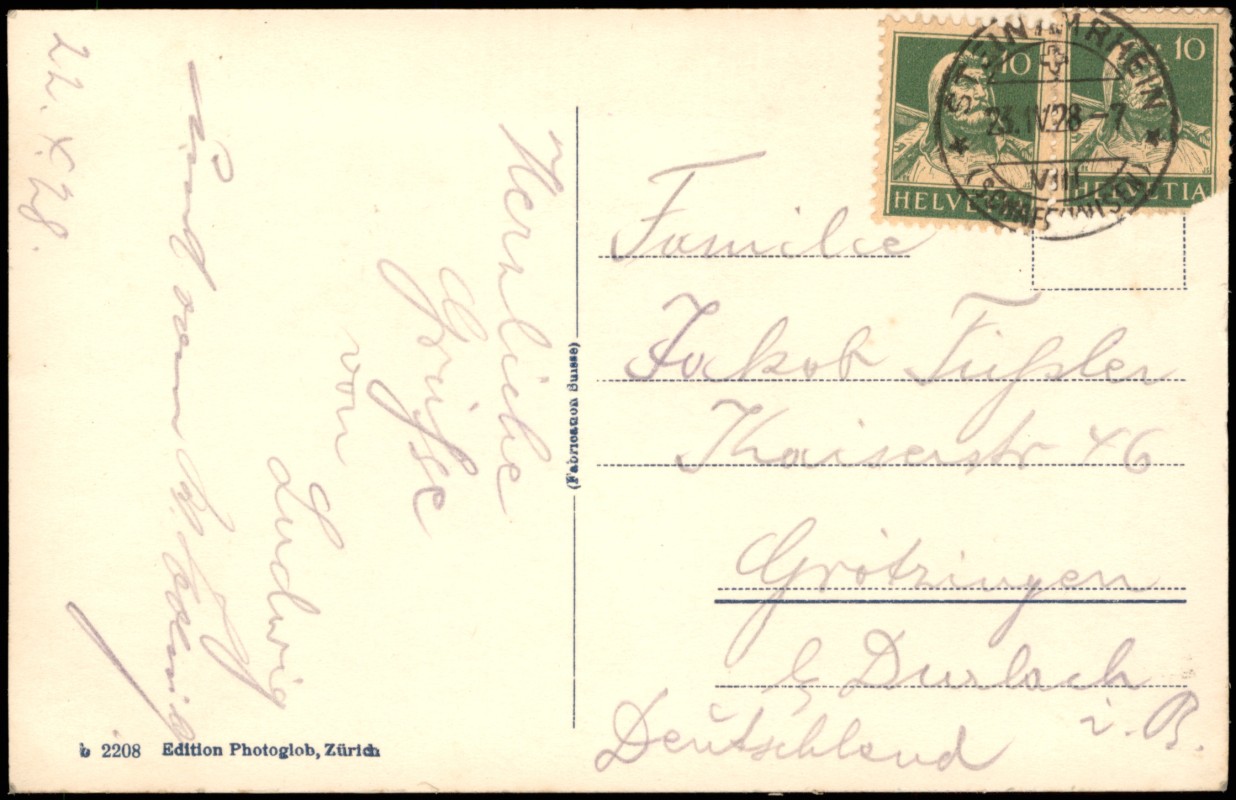 22. X. 28.
Herzliche
Grüsse
von
Ludwig
Und
10
10
HELVETIA
HELVETIA
STEIN AM RHEIN
23.IV.28-7
VIII
(SCHAFFHAUSEN)
(Fabrication Suisse)
Familie
Jakob
Kaiserstr 46
Grötzingen
b. Durlach
i. B.
Deutschland
b 2208 Edition Photoglob, Zürich